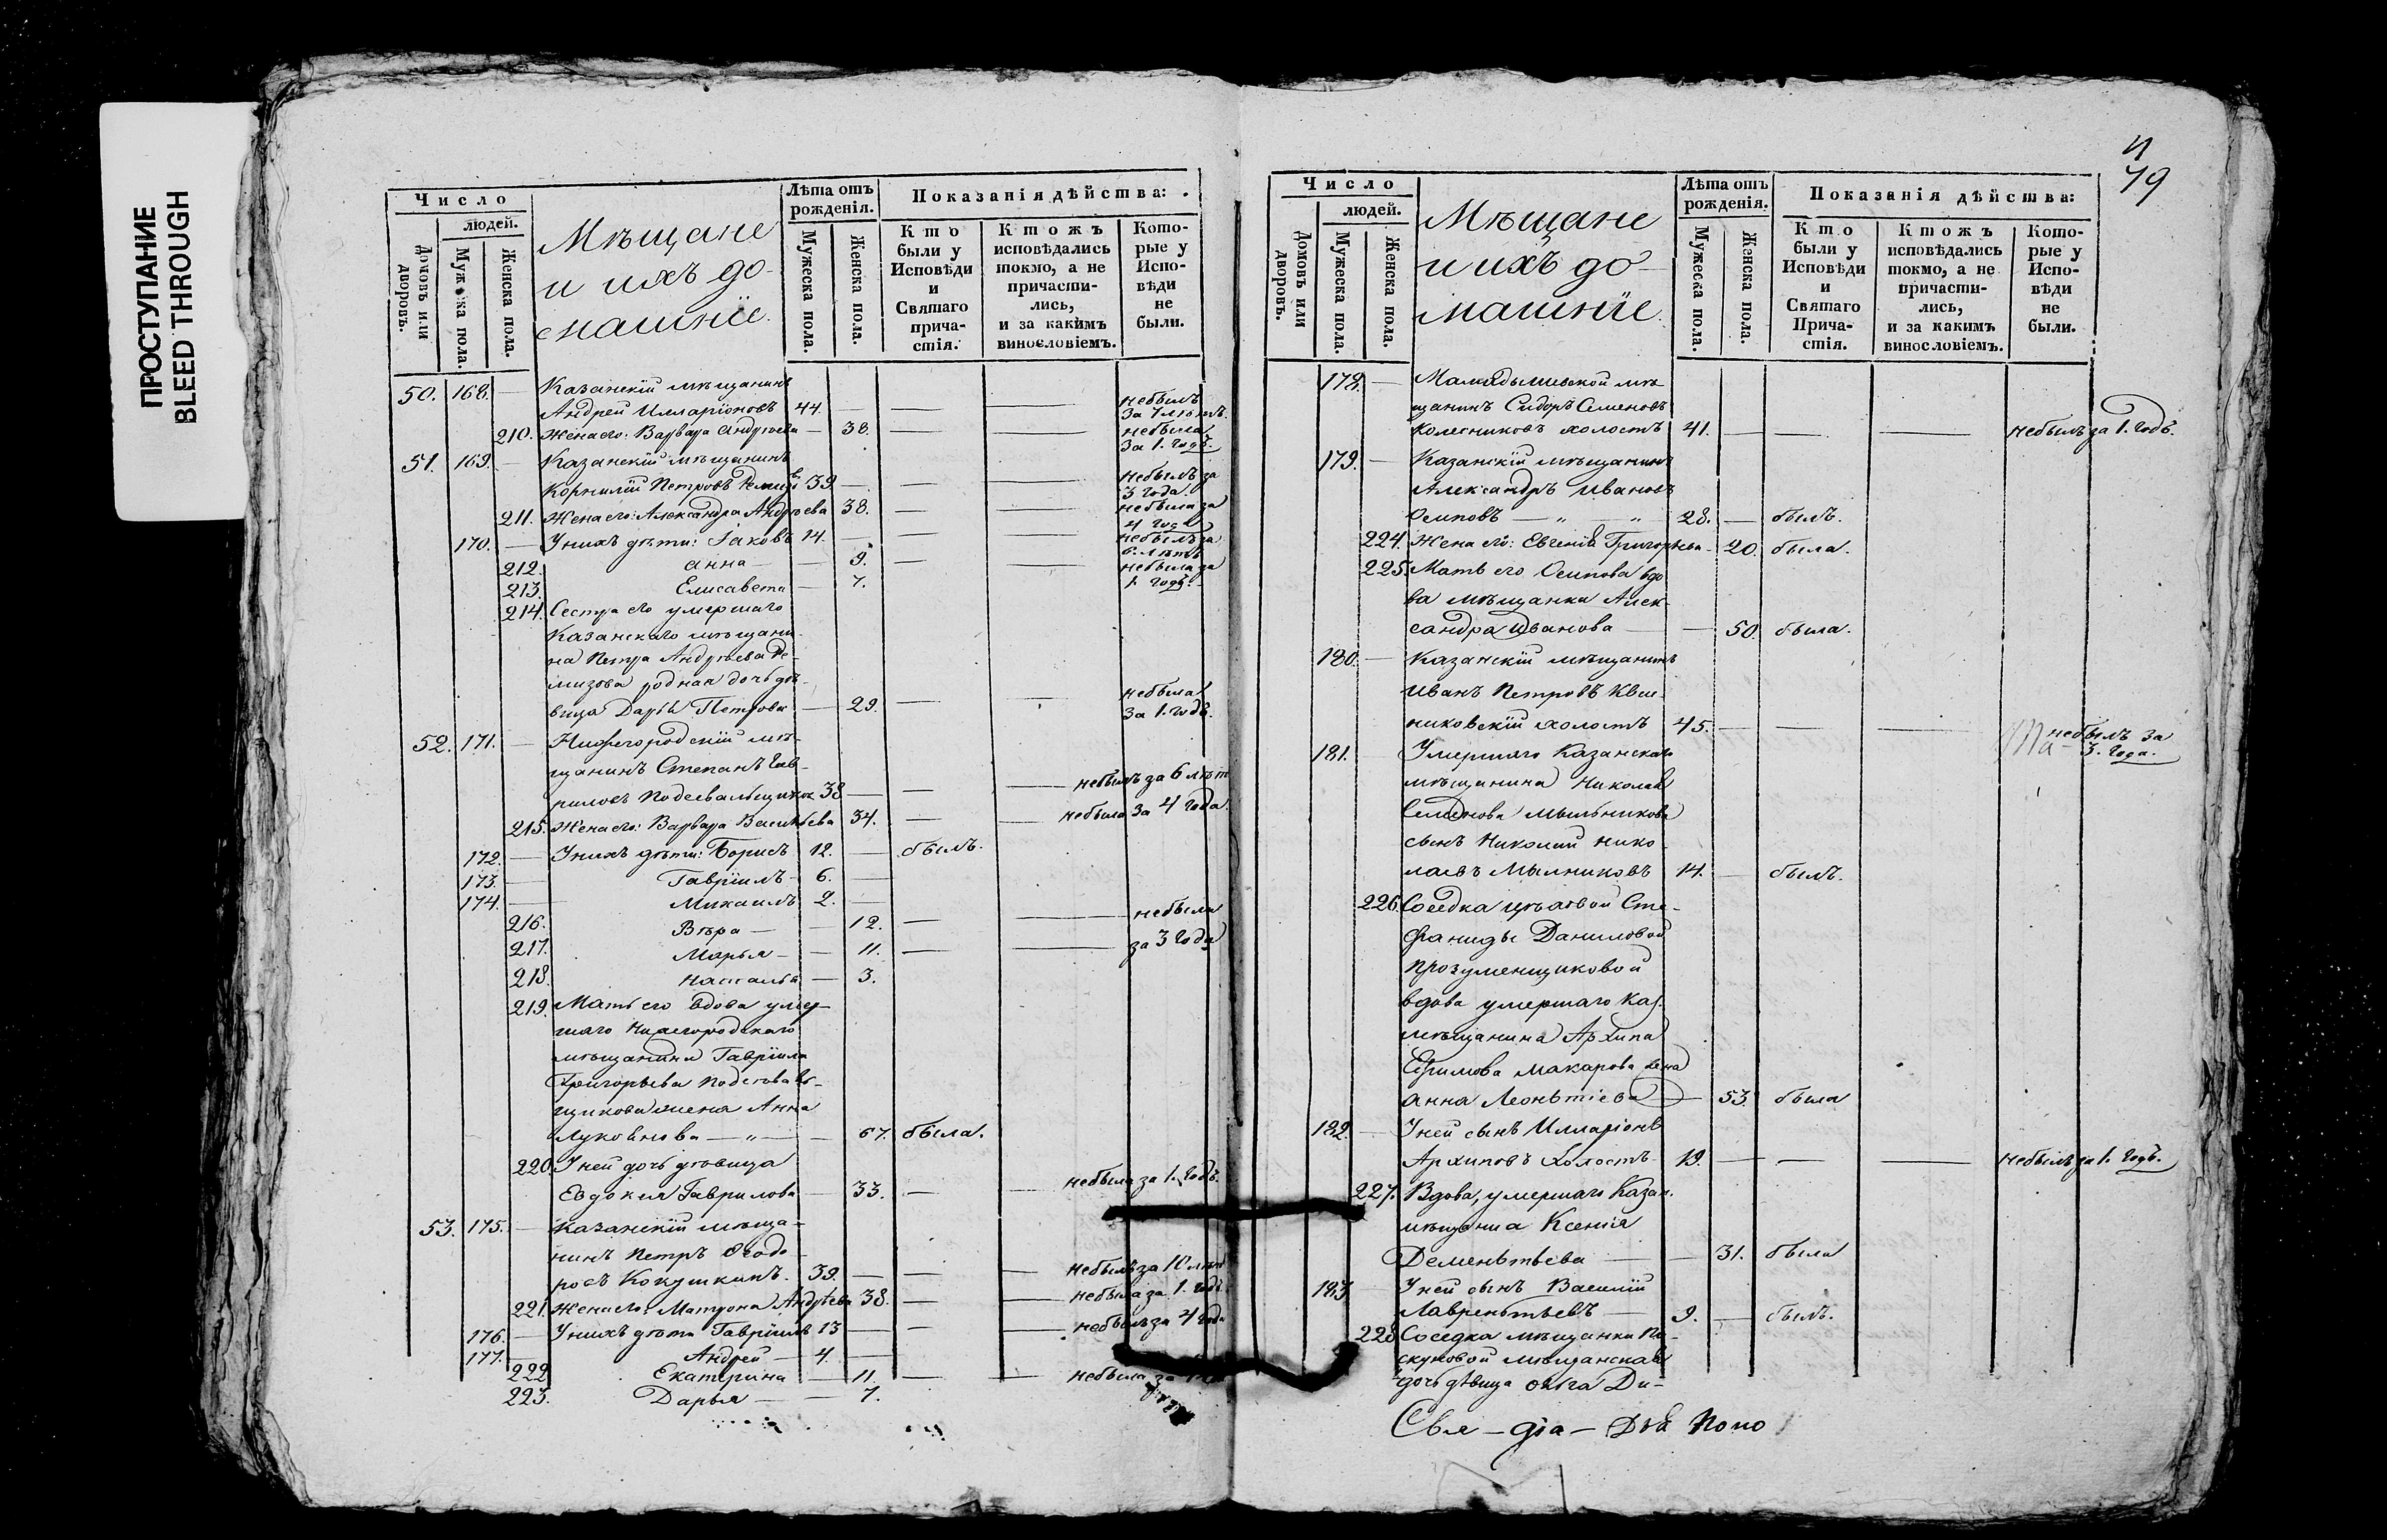 ПРОСТУПАНИЕ
BLEED THROUGH
Число
людей.
Домовъ или дворовъ.
Мужска пола.
Женска пола.
Мѣщане
и ихъ до-
машніе.
Лѣта отъ
рожденія.
Мужеска пола.
Женска пола.
Показанія дѣйства:
Кто
были у
Исповѣди
и
Святаго
прича-
стія.
Ктожъ
исповѣдались
токмо, а не
причасти-
лись,
и за какимъ
винословіемъ.
Кото-
рые у
Испо-
вѣди
не
были.
50. 168. — Казанскій мѣщанинъ
Андрей Илларіоновъ 44. — — — небылъ за 7 лѣтъ.
210. Жена его: Варвара Андрѣева — 38. — — небыла за 1. годъ.
51. 169. — Казанскій мѣщанинъ
Корнилій Петровъ 39. — — — небылъ за 3 года.
211. Жена его: Александра Андрѣева 38. — — небыла за 4 года
170. — У нихъ дѣти: Іаковъ 14. — — — небылъ за 6. лѣтъ
212. Анна — — 9. — — небыла за 1. годъ.
213. Елисавета — 7.
214. Сестра его умершаго
Казанскаго мѣщани-
на Петра Андрѣева Ре-
мизова родная дочь дѣ-
вица Дарья Петрова — 29. — — небыла за 1. годъ.
52. 171. — Нижегородскій мѣ-
щанинъ Степанъ Гав-
риловъ 38 — — — небылъ за 6 лѣт
215. Жена его: Варвара Васильева 34. — — небыла за 4 года.
172. — У нихъ дѣти: Борисъ 12. — былъ.
173. — Гавріилъ — 6. —
174. — Михаилъ 2. —
216. Вѣра — — 12. — — небыла
217. Марья — — 11. — — за 3 года
218. Наталья — 3.
219. Мать его вдова умер-
шаго Нижегородскаго
мѣщанина Гавріила
Григорьева
жена Анна
— „ — — 67. была.
220. У ней дочь дѣвица
Евдокия Гаврилова — 33. — — небыла за 1. годъ.
53. 175. — Казанскій мѣща-
нинъ Петръ Ѳеодо-
ровъ Кокушкинъ. 39. — — — небылъ за 10 лѣт
221. Жена его: Матрона Андрѣева 38. — — небыла за 1. годъ
176. — У нихъ дѣти Гавріилъ 13 — — — небылъ за 4 года
177. — Андрей — 4. —
222. Екатерина — 11. — — небыла за
223. Дарья — — 7.
79
Число
людей.
Домовъ или дворовъ.
Мужеска пола.
Женска пола.
Мѣщане
и ихъ до-
машніе.
Лѣта отъ
рожденія.
Мужеска пола.
Женска пола.
Показанія дѣйства:
Кто
были у
Исповѣди
и
Святаго
Прича-
стія.
Ктожъ
исповѣдались
токмо, а не
причасти-
лись,
и за какимъ
винословіемъ.
Кото-
рые у
Испо-
вѣди
не
были.
178. — Мамадышской мѣ-
щанинъ Сидоръ Семеновъ
Колесниковъ холостъ 41. — — — небылъ за 1. годъ.
179. — Казанскій мѣщанинъ
Александръ Ивановъ
Осиповъ — „ — „ — 28. — былъ.
224. Жена его: Евгенія Григорьева — 20. была.
225. Мать его Осипова вдо
ва мѣщанка Алек-
сандра Иванова — — 50. была.
180. — Казанскій мѣщанинъ
Иванъ Петровъ
холостъ 45. — — — небылъ за
3. года.
181. Умершаго Казанскаго
мѣщанина Николая
Семенова Мыльникова
сынъ Николай Нико-
лаевъ Мылниковъ 14. — былъ.
226. Соседка Сте-
фаниды Даниловой
Прозуменщиковой
вдова умершаго Каз.
мѣщанина Архипа
Ефимова Макарова жена
Анна Леонтіева — 53. была
182. — У ней сынъ Илларіонъ
Архиповъ холостъ 19. — — — небылъ за 1. годъ.
227. Вдова, умершаго Казан.
Ксенія
Дементьева — — 31. была
183 У ней сынъ Василій
Лаврентьевъ — 9. — былъ.
228. Соседка мѣщанки Пи-
скуновой мѣщанская
дочь дѣвица Ольга Ди-